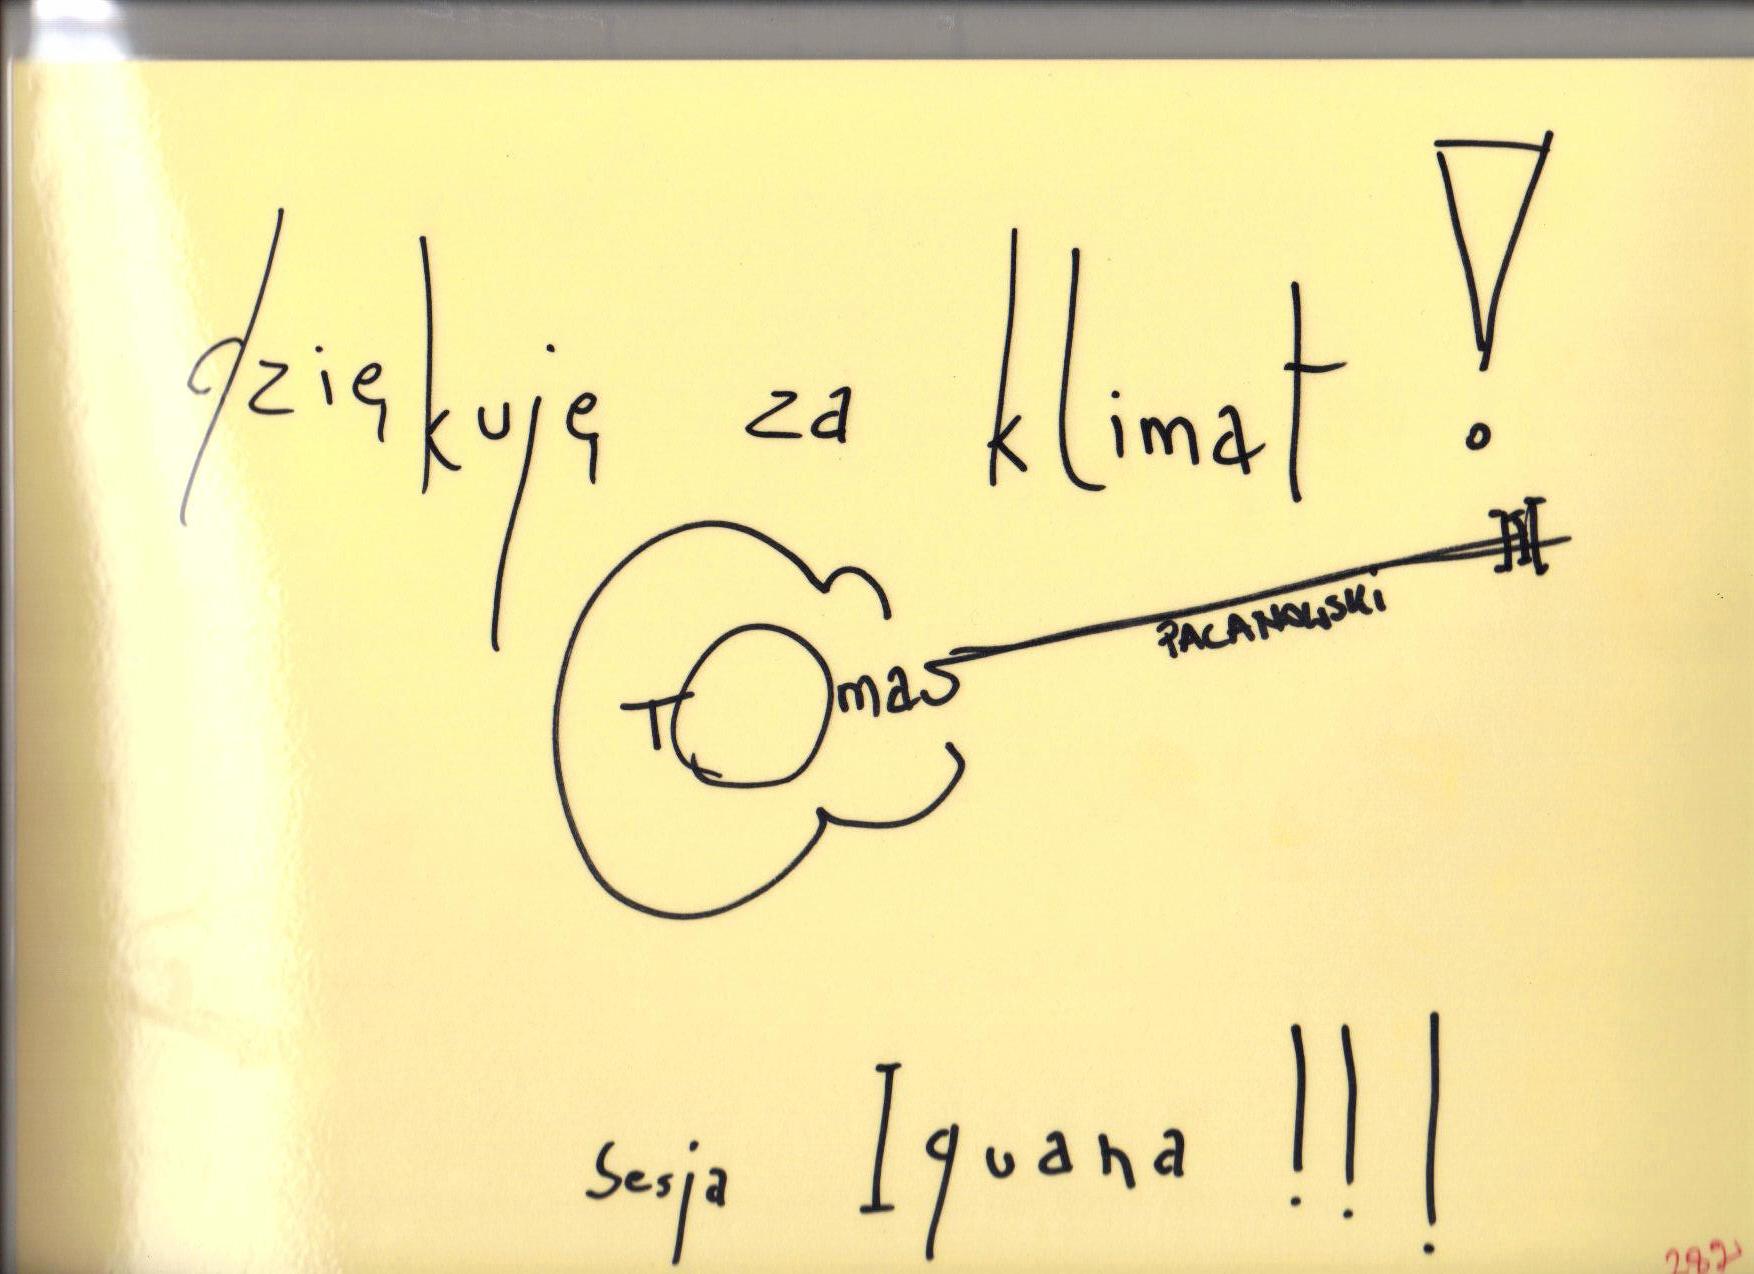 dziękuję za klimat!
Tomas
PACANOWSKI
Sesja Iquana !!!
282